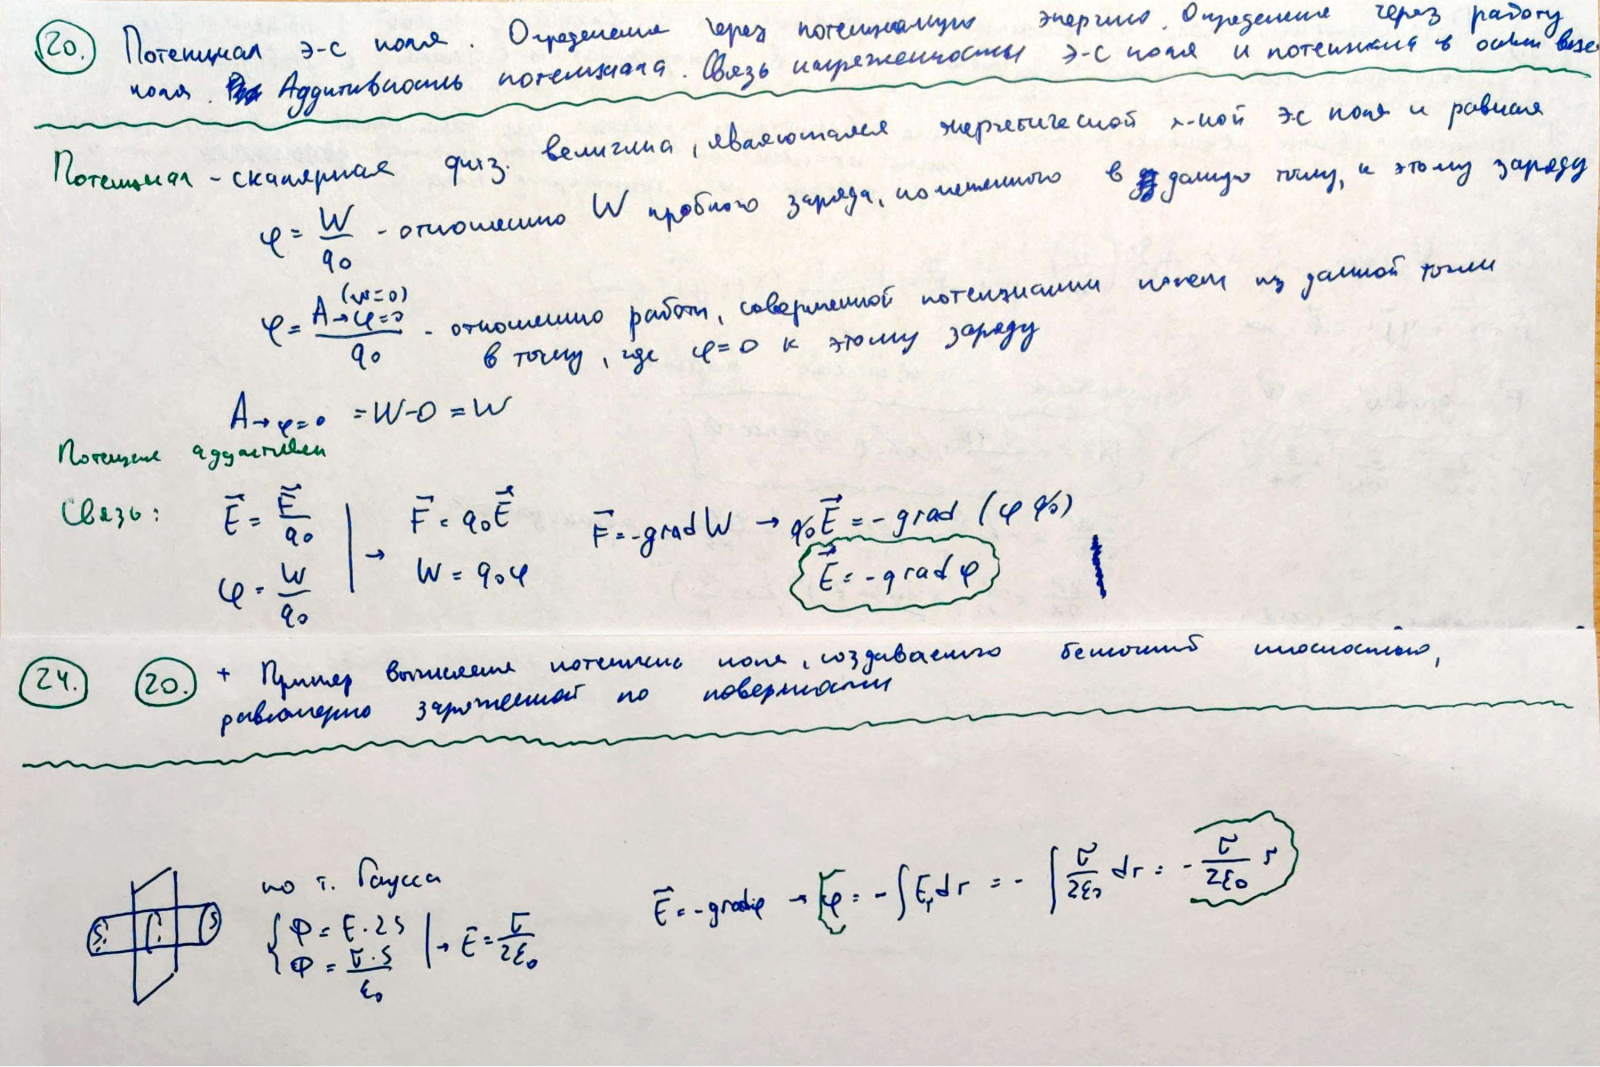 20. Потенциал э-с поля. Определение через потенциальную энергию. Определение через работу
поля. Аддитивность потенциала. Связь напряженности э-с поля и потенциала в общем виде
Потенциал - скалярная физ. величина, являющаяся энергетической х-кой эс поля и равная
φ = W/q₀ - отношению W пробного заряда, помещенного в данную точку, к этому заряду
(W=0)
φ = A→φ=0/q₀ - отношению работы, совершенной потенциалом полем из данной точки
в точку, где φ=0 к этому заряду
A→φ=0 = W-0 = W
Потенциал аддитивен
Связь: E⃗ = F⃗/q₀ | → F⃗ = q₀E⃗ F⃗ = -grad W → q₀E⃗ = -grad (φ q₀)
φ = W/q₀ W = q₀φ E⃗ = -grad φ
24. 20. + Пример вычисления потенциала поля, создаваемого бесконечной плоскостью,
равномерно заряженной по поверхности
по т. Гаусса
{ Ф = E·2S | → E = σ/2ε₀
Ф = σ·S/ε₀
E⃗ = -gradφ → φ = -∫Eᵣdr = -∫ σ/2ε₀ dr = - σ/2ε₀ r
S S